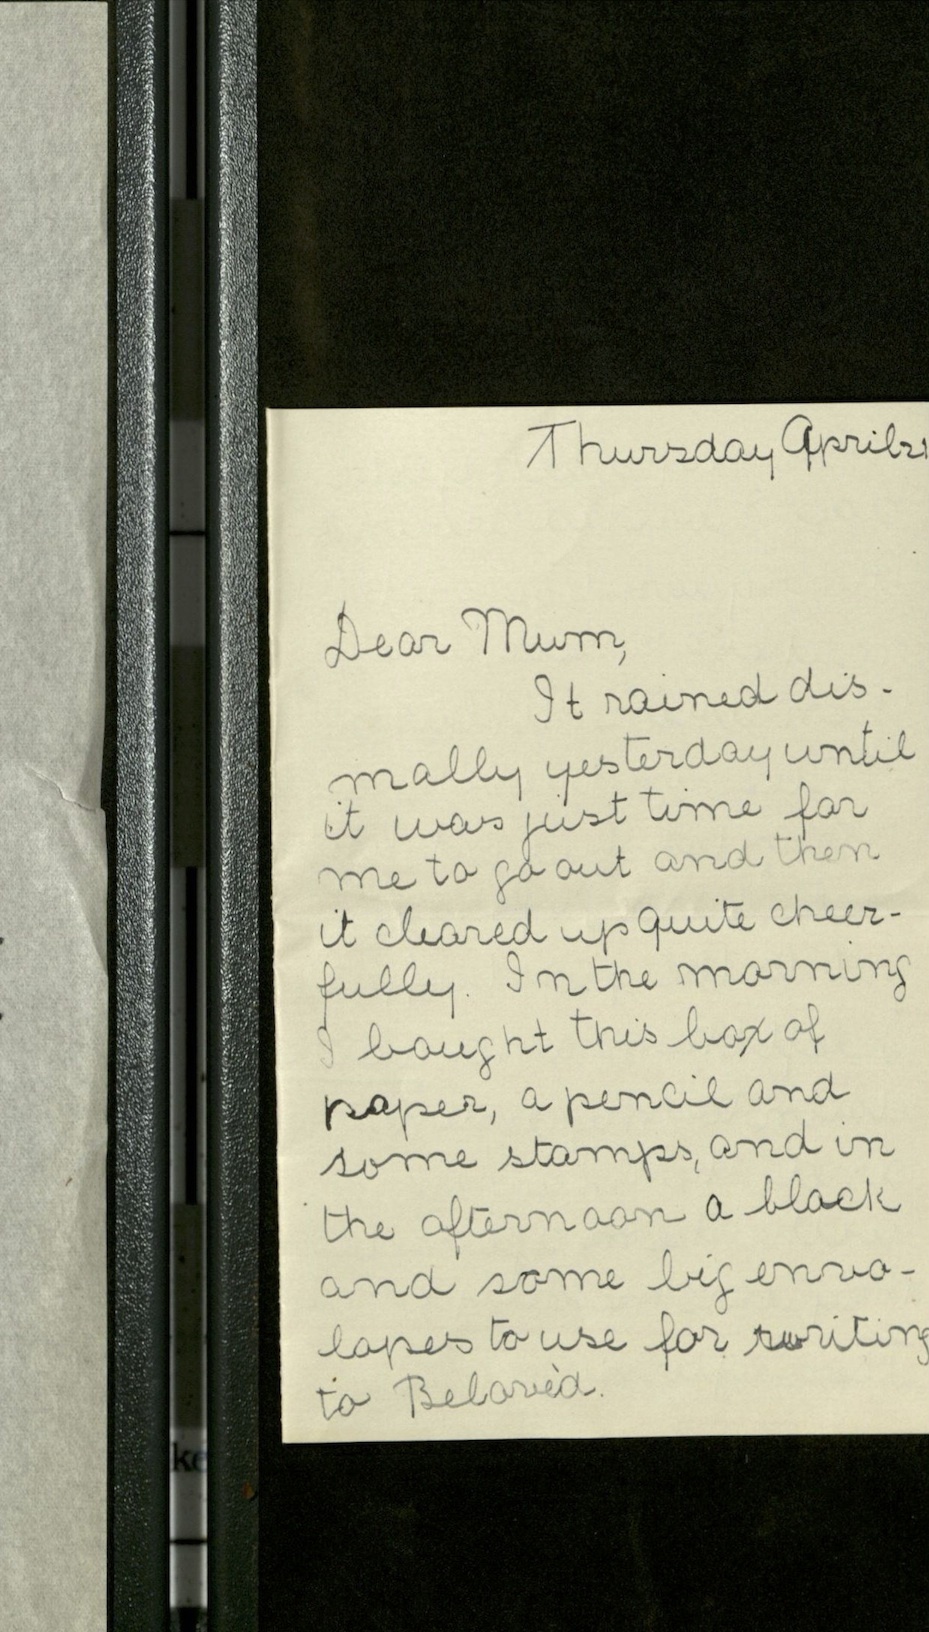 Thursday April 21
Dear Mum,
It rained dis-
mally yesterday until
it was just time for
me to go out and then
it cleared up quite cheer-
fully. In the morning
I bought this box of
paper, a pencil and
some stamps, and in
the afternoon a block
and some big enve-
lopes to use for writing
to Beloved.
ke